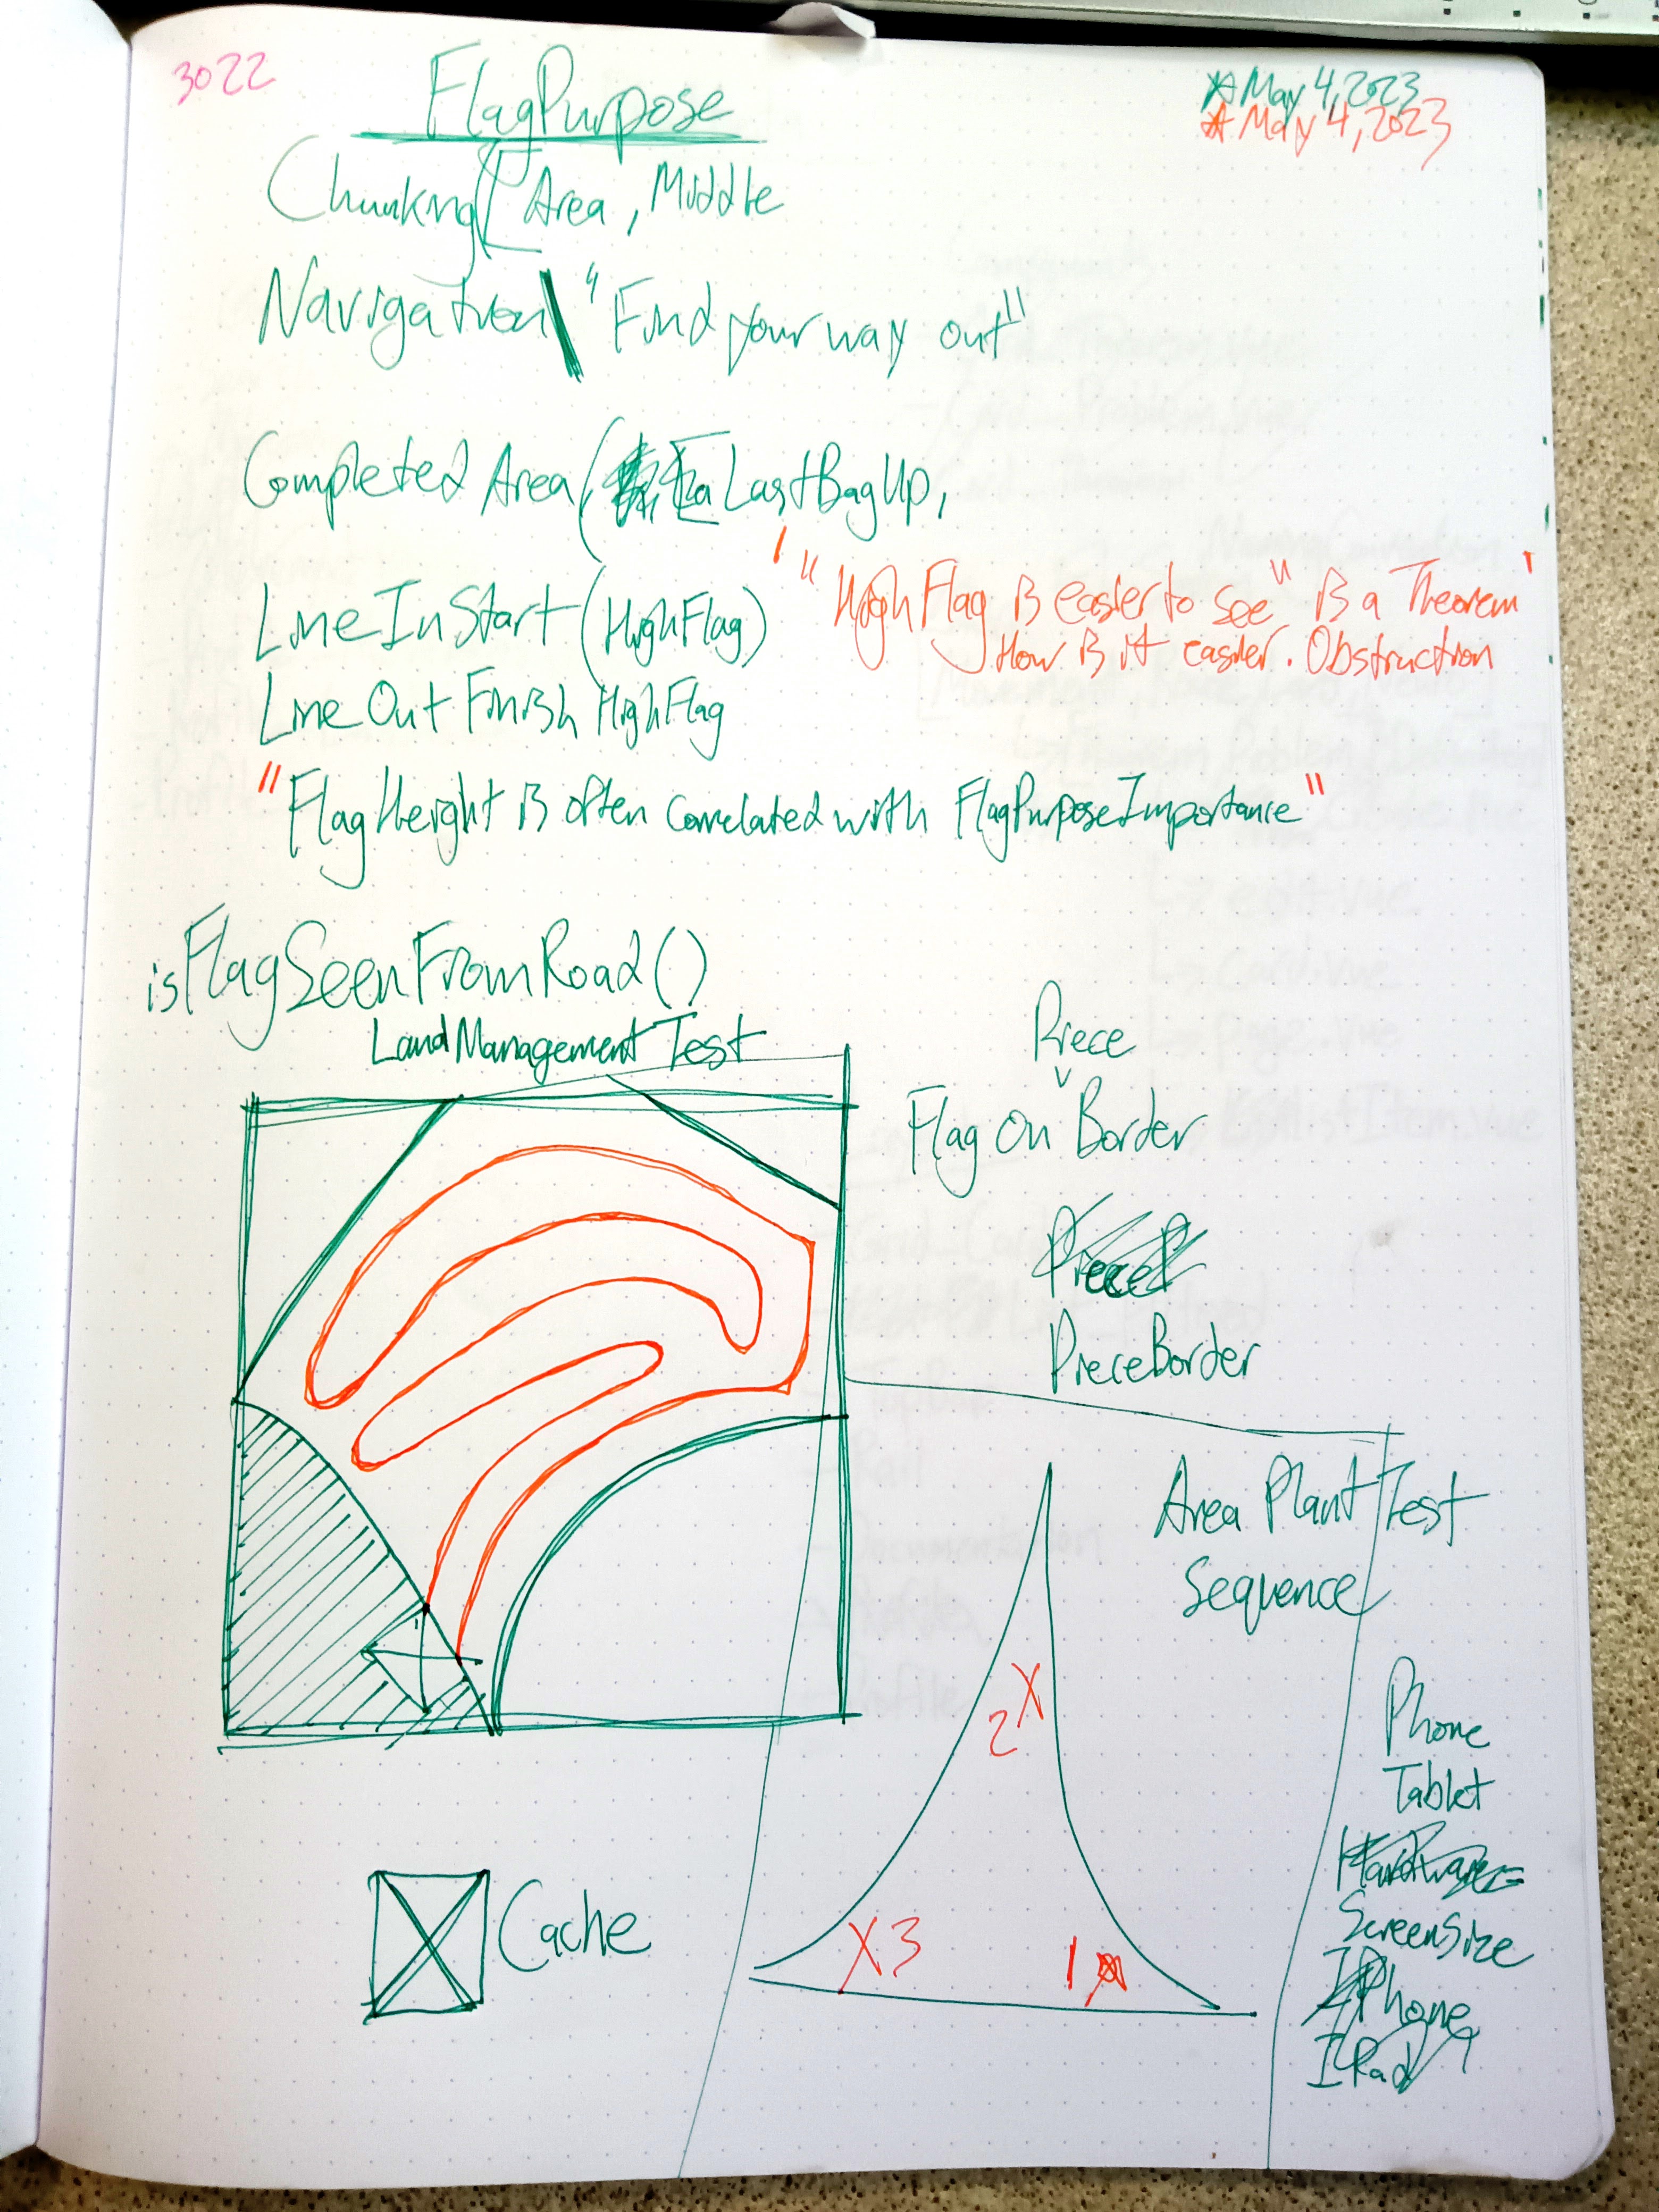 3022
FlagPurpose
☆ May 4, 2023
☆ May 4, 2023
Chunking [Area, Middle
Navigation \ "Find your way out"
Completed Area ( LastBagUp,
LineInStart (HighFlag)
' "HighFlag is easier to see" is a Theorem '
How is it easier. Obstruction
Line Out Finish HighFlag
"FlagHeight is often correlated with FlagPurposeImportance"
isFlagSeenFromRoad()
LandManagement Test
Piece
Flag On ^ Border
PieceP
PieceBorder
Area Plant Test
Sequence
2X
X3
1
Cache
Phone
Tablet
Hardware
ScreenSize
IPhone
IPad